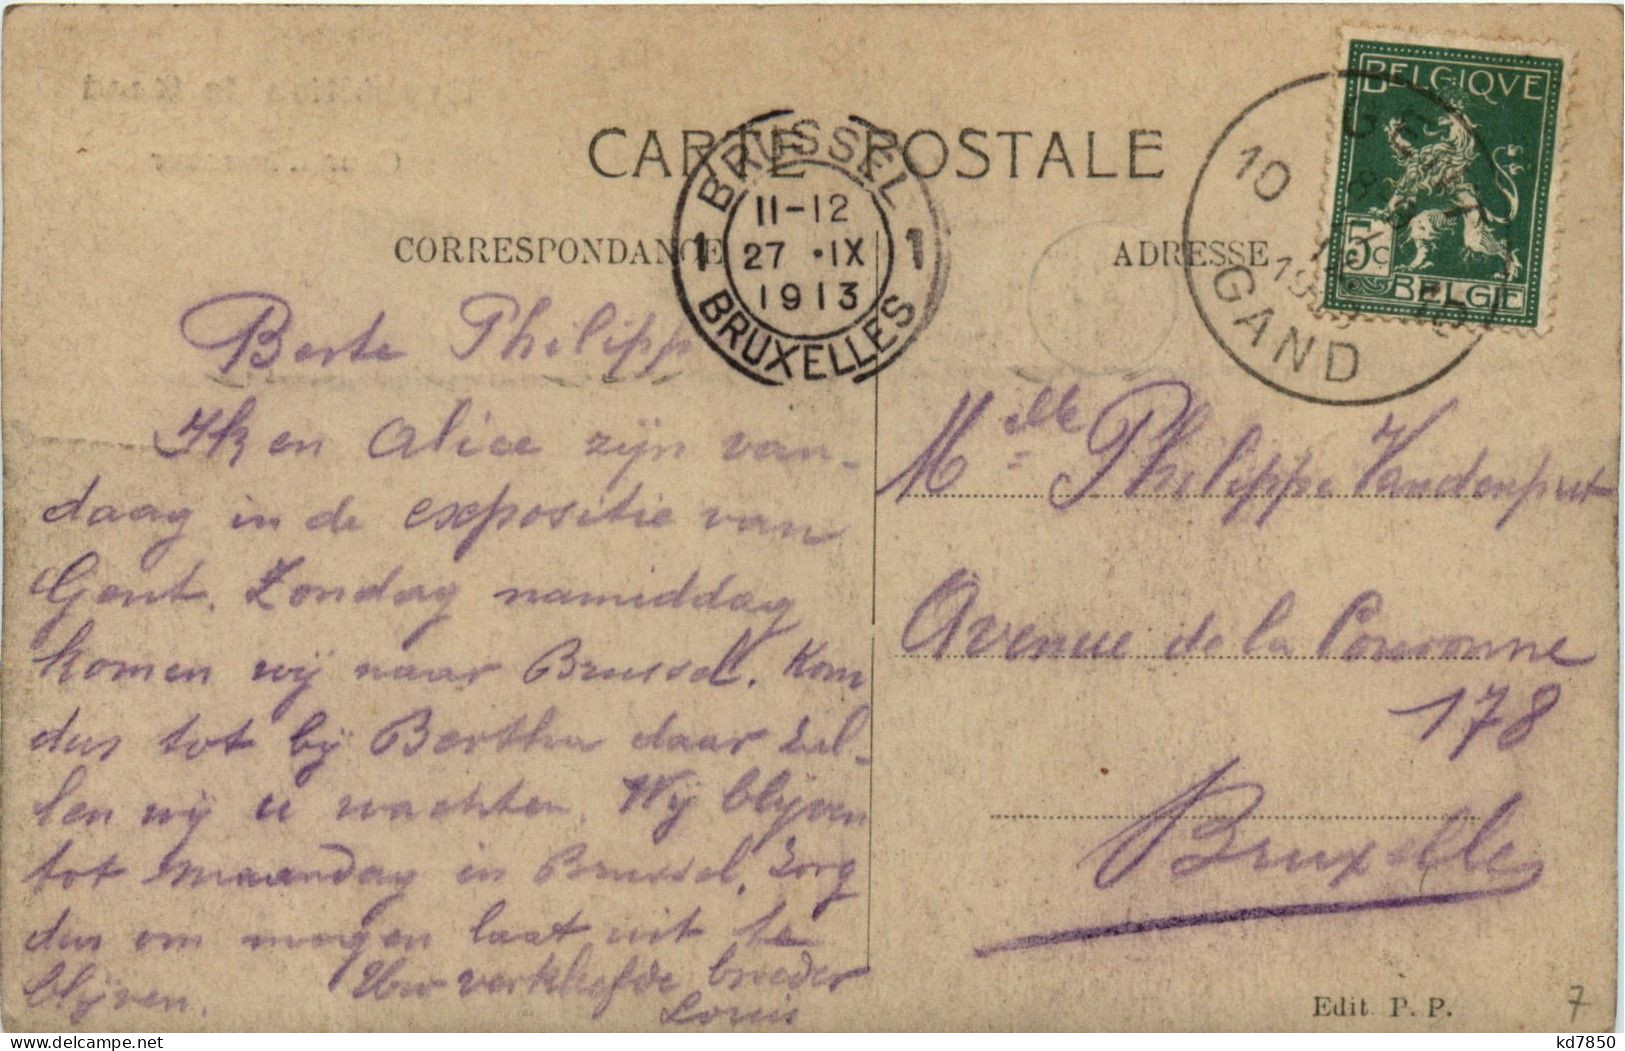 CARTE POSTALE
CORRESPONDANCE
ADRESSE
BRUSSEL
11-12
1 27 · IX 1
1913
BRUXELLES
BELGIQVE
5c
BELGIE
GENT
10
GAND
Beste Philipp
Ik en Alice zijn van-
daag in de expositie van
Gent. Zondag namiddag
komen wij naar Brussel. Kom
dus tot bij Bertha daar zul-
len wij u wachten. Wij blijven
tot maandag in Brussel. Zorg
dus om morgen laat uit te
blijven. Uw verkleefde broeder
Louis
Melle Philippe Vandenput
Avenue de la Couronne
178
Bruxelles
Edit. P. P.
7
kd7850